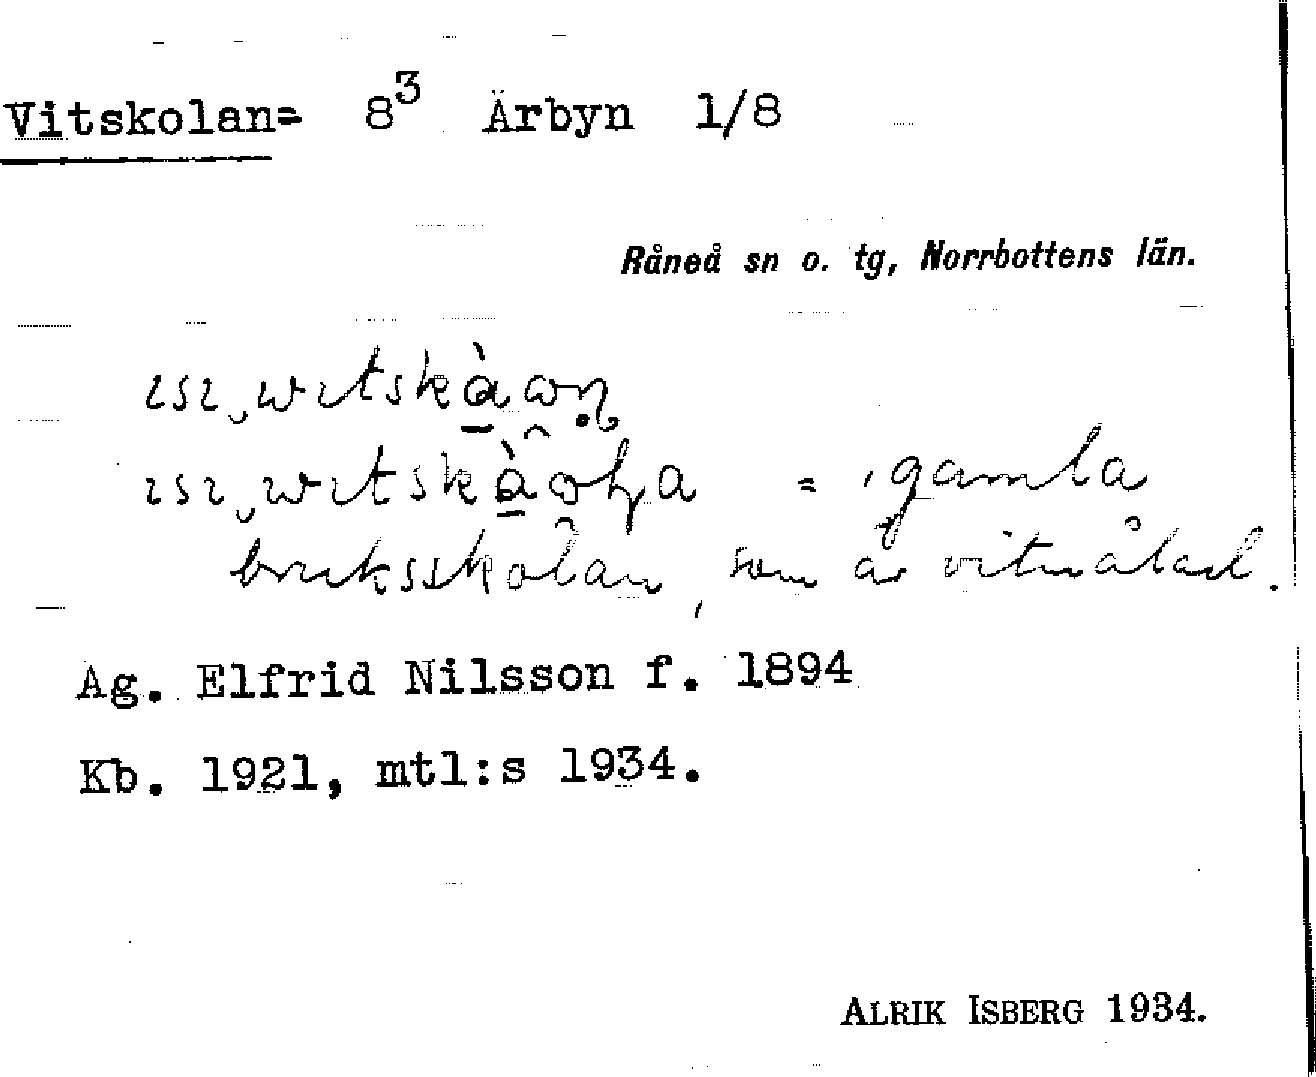 Vitskolan= 8³ Ärbyn 1/8
Råneå sn o. tg, Norrbottens län.
= gamla
bruksskolan, som är vitmålad.
Ag. Elfrid Nilsson f. 1894
Kb. 1921, mtl:s 1934.
ALRIK ISBERG 1934.